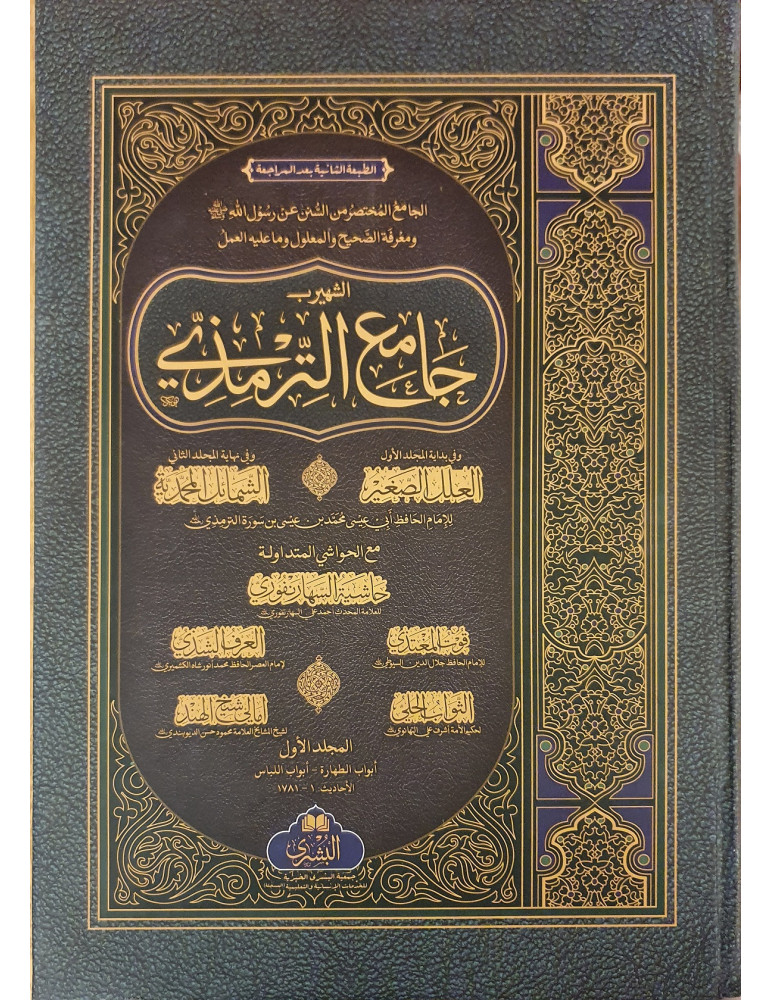 الطبعة الثانية بعد المراجعة
الجامع المختصر من السنن عن رسول الله ﷺ
ومعرفة الصحيح والمعلول وما عليه العمل
الشهير بـ
جَامِع التِّرْمِذِيّ
وفي بداية المجلد الأول
العلل الصغير
وفي نهاية المجلد الثاني
الشمائل المحمدية
للإمام الحافظ أبي عيسى محمد بن عيسى بن سورة الترمذي
مع الحواشي المتداولة
حاشية السهارنفوري
للعلامة المحدث أحمد علي السهارنفوري
قوت المغتذي
للإمام الحافظ جلال الدين السيوطي
العرف الشذي
لإمام العصر الحافظ محمد أنور شاه الكشميري
الثواب الحلي
لحكيم الأمة أشرف علي التهانوي
أمالي شيخ الهند
لشيخ المشايخ العلامة محمود حسن الديوبندي
المجلد الأول
أبواب الطهارة - أبواب اللباس
الأحاديث: ١ - ١٧٨١
البشرى